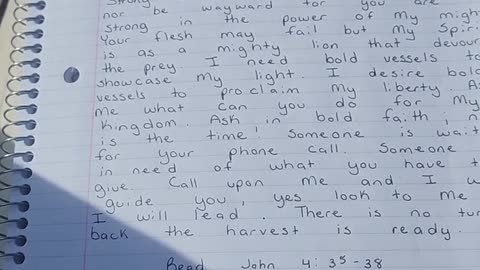 Strong
nor be wayward for you are
strong in the power of My migh
Your flesh may fail but My Spiri
is as a mighty lion that devour
the prey. I need bold vessels to
showcase My light. I desire bold
vessels to proclaim My liberty. As
me what can you do for My
Kingdom. Ask in bold faith, n
is the time! Someone is wait
for your phone call. Someone
in need of what you have t
give. Call upon Me and I w
guide you, yes look to Me
I will lead. There is no tur
back the harvest is ready.
Read John 4:35-38